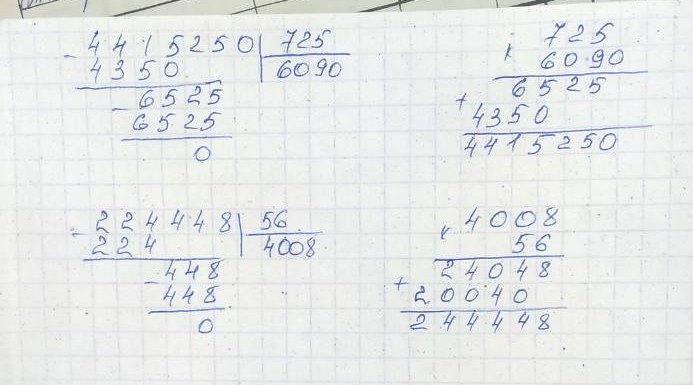 - 4415250 | 725
4350 | 6090
- 6525
6525
0
725
× 6090
6525
+ 4350
4415250
- 224448 | 56
224 | 4008
- 448
448
0
4008
× 56
24048
+ 20040
244448